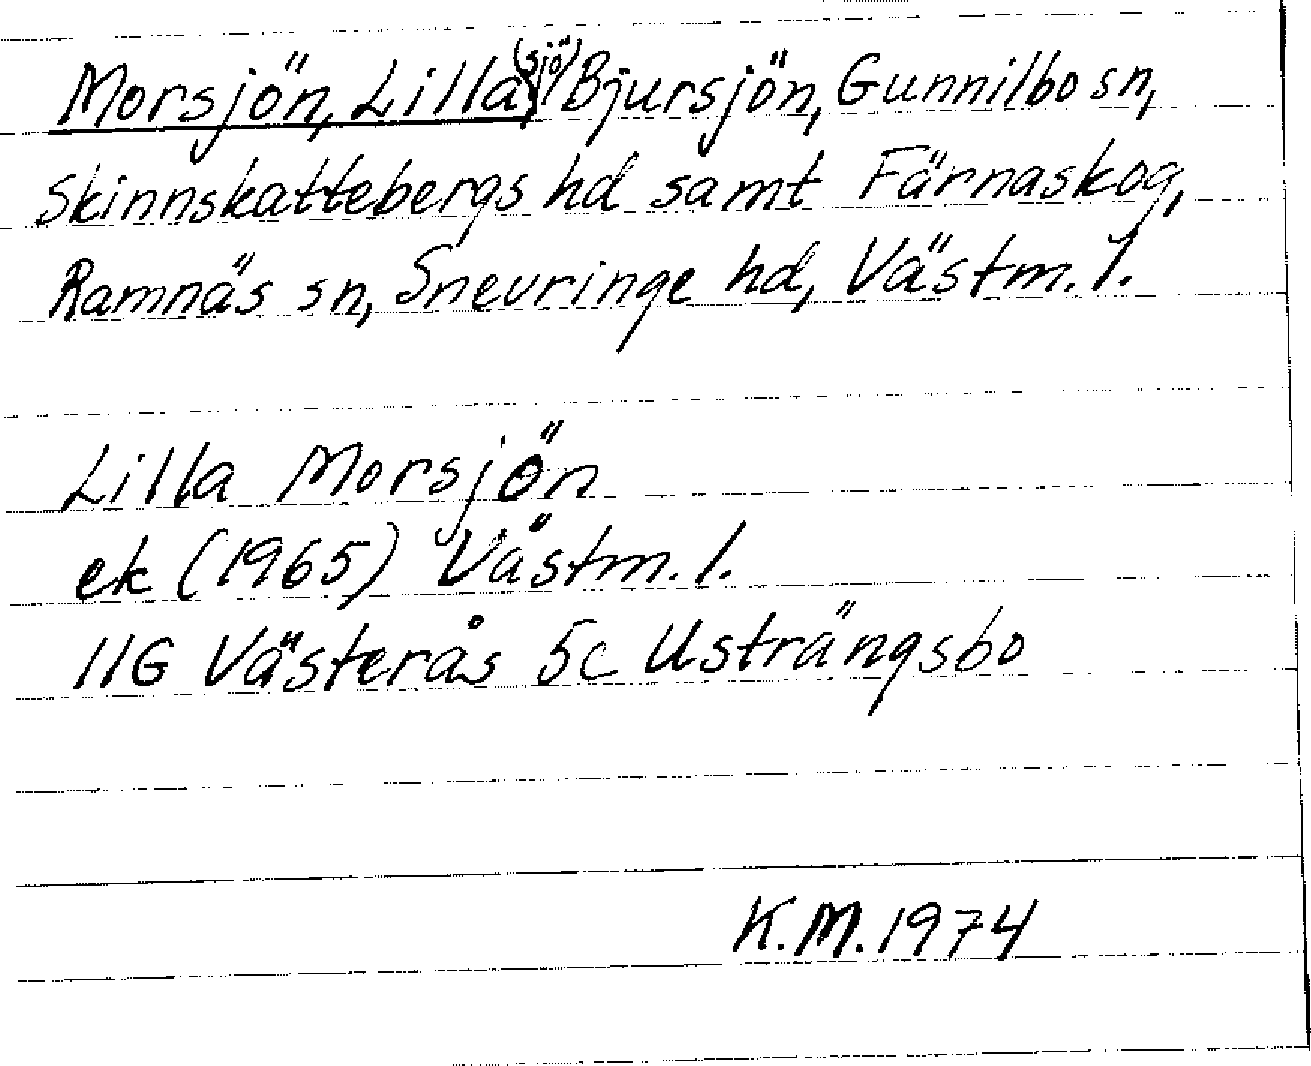 Morsjön, Lilla, (sjö) Bjursjön, Gunnilbo sn,
Skinnskattebergs hd samt Färnaskog,
Ramnäs sn, Snevringe hd, Västm. l.
Lilla Morsjön
ek (1965) Västm. l.
11G Västerås 5c Usträngsbo
K.M. 1974